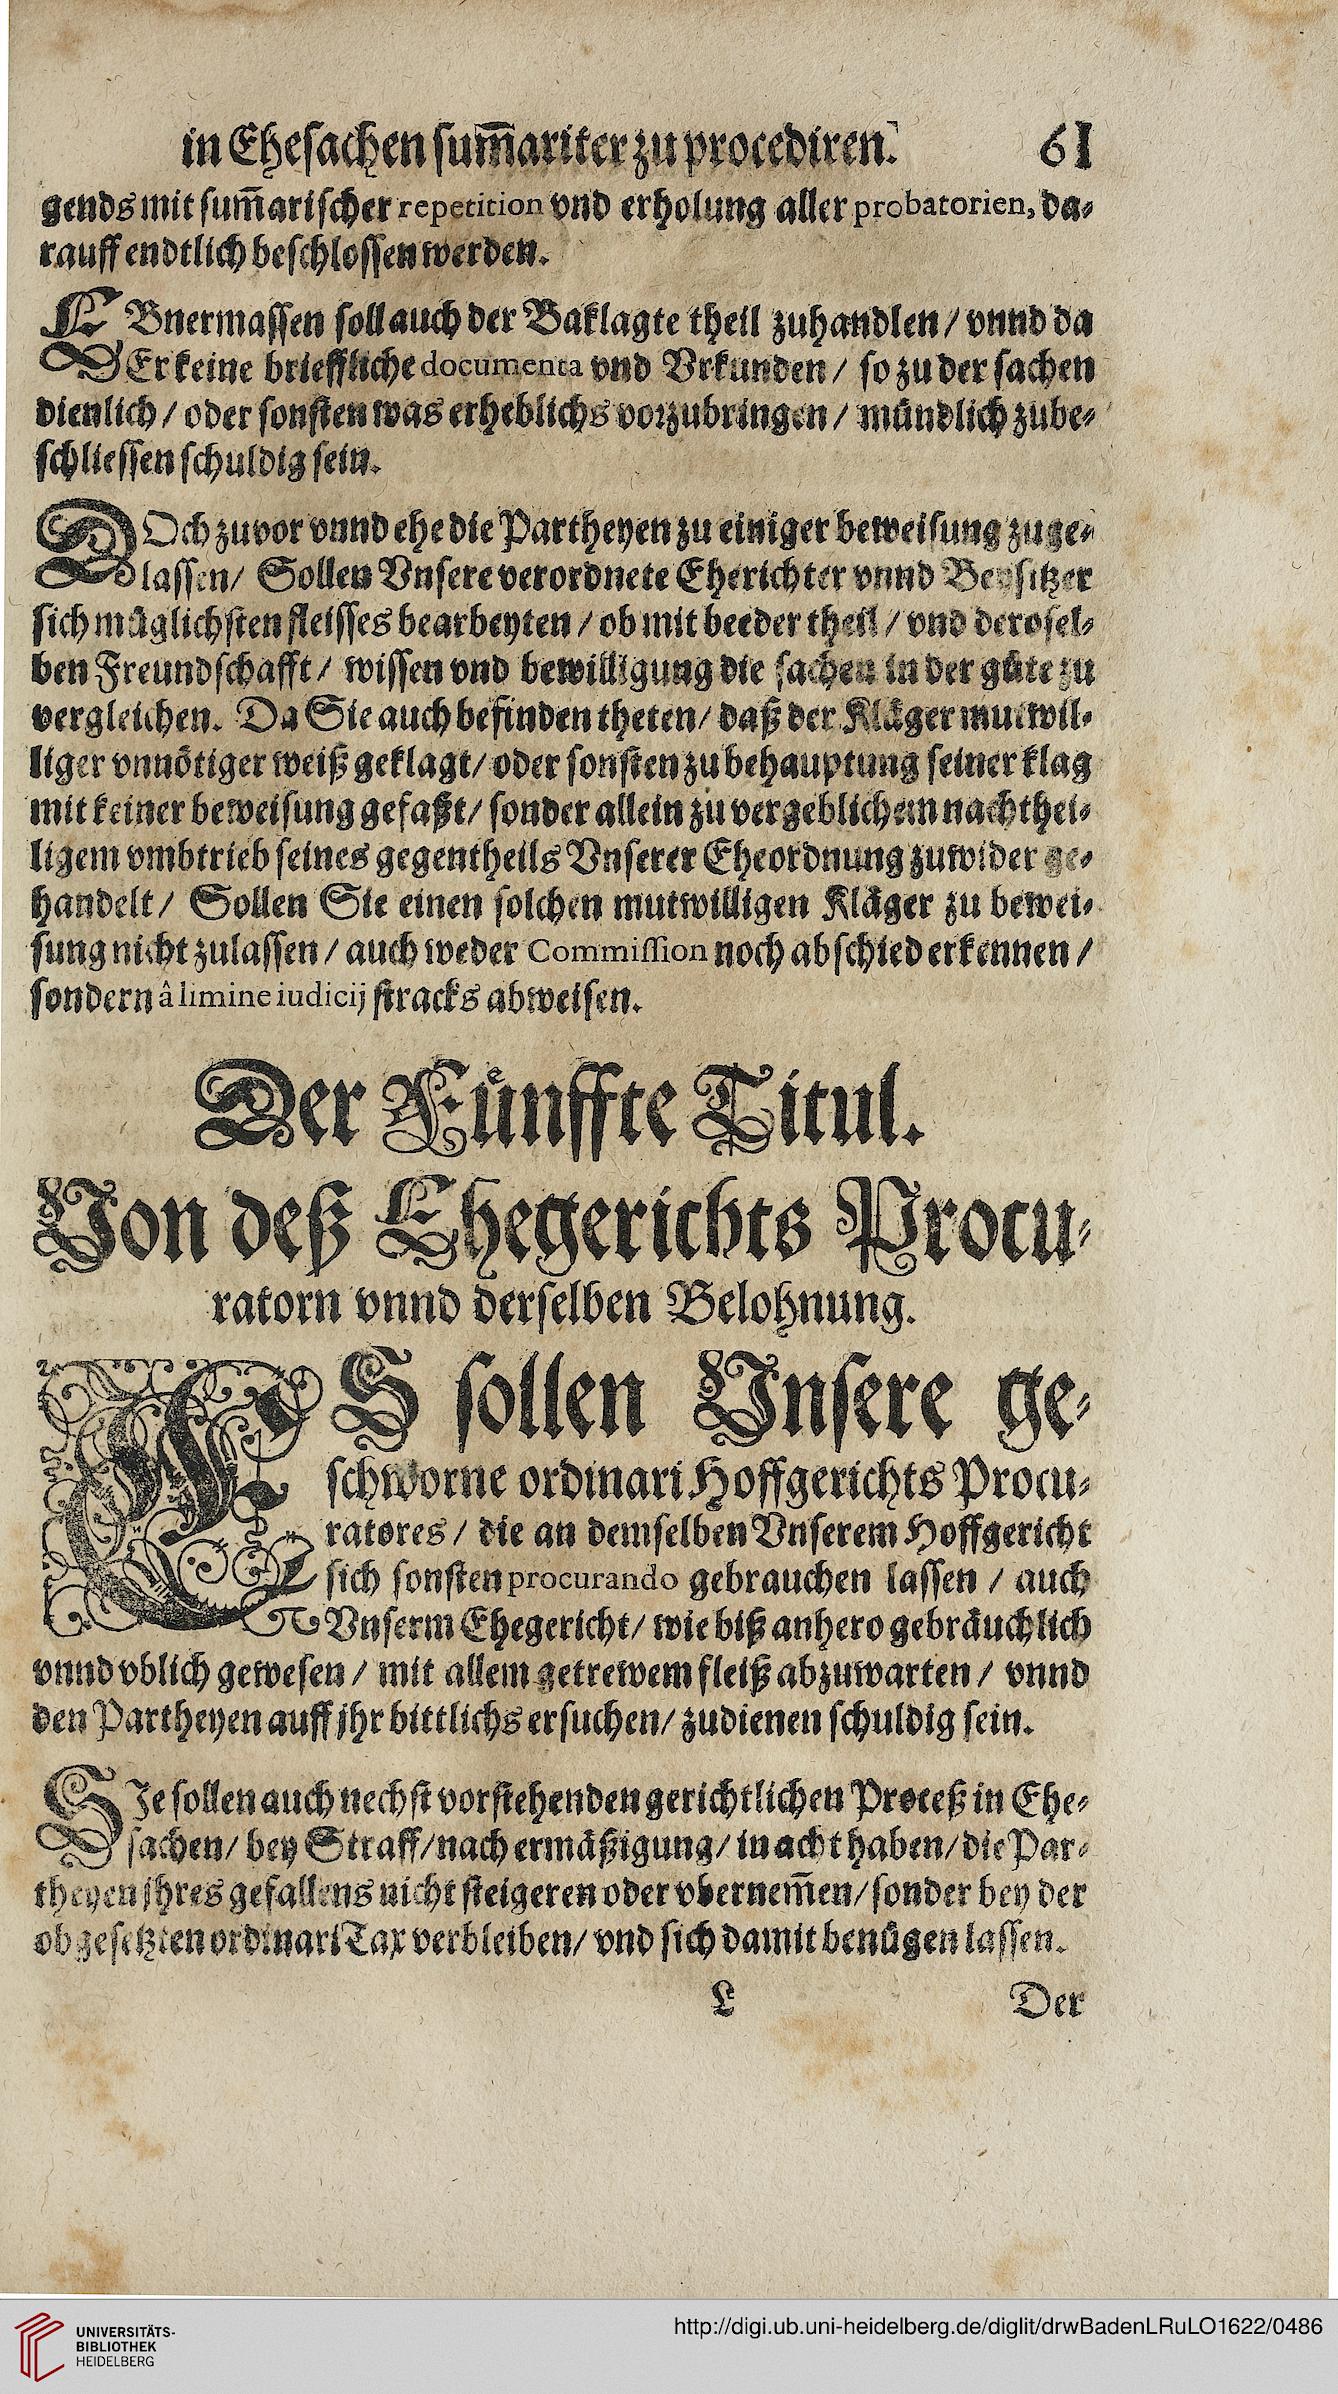 in Ehesachen sum̃ariter zu procediren. 61
gends mit sum̃arischer repetition vnd erholung aller probatorien, da-
rauff endtlich beschlossen werden.
EBnermassen soll auch der Baklagte theil zuhandlen / vnnd da
Er keine brieffliche documenta vnd Vrkunden / so zu der sachen
dienlich / oder sonsten was erheblichs vorzubringen / mündlich zube-
schliessen schuldig sein.
DOch zuvor vnnd ehe die Partheyen zu einiger beweisung zuge-
lassen / Sollen Vnsere verordnete Eherichter vnnd Beysitzer
sich müglichsten fleisses bearbeyten / ob mit beeder theil / vnd derosel-
ben Freundschafft / wissen vnd bewilligung die sachen in der güte zu
vergleichen. Da Sie auch befinden theten / daß der Kläger mutwil-
liger vnnötiger weiß geklagt / oder sonsten zu behauptung seiner klag
mit keiner beweisung gefaßt / sonder allein zu vergeblichem nachthei-
ligem vmbtrieb seines gegentheils Vnserer Eheordnung zuwider ge-
handelt / Sollen Sie einen solchen mutwilligen Kläger zu bewei-
sung nicht zulassen / auch weder Commission noch abschied erkennen /
sondern â limine iudicij stracks abweisen.
Der Fünffte Titul.
Von deß Ehegerichts Procu-
ratorn vnnd derselben Belohnung.
ES sollen Vnsere ge-
schworne ordinari Hoffgerichts Procu-
ratores / die an demselben Vnserem Hoffgericht
sich sonsten procurando gebrauchen lassen / auch
Vnserm Ehegericht / wie biß anhero gebräuchlich
vnnd vblich gewesen / mit allem getrewem fleiß abzuwarten / vnnd
den Partheyen auff jhr bittlichs ersuchen / zudienen schuldig sein.
SIe sollen auch nechst vorstehenden gerichtlichen Proceß in Ehe-
sachen / bey Straff / nach ermäßigung / in acht haben / die Par-
theyen jhres gefallens nicht steigeren oder vbernem̃en / sonder bey der
obgesetzten ordinari Tax verbleiben / vnd sich damit benügen lassen.
L Der
UNIVERSITÄTS-
BIBLIOTHEK
HEIDELBERG
http://digi.ub.uni-heidelberg.de/diglit/drwBadenLRuLO1622/0486